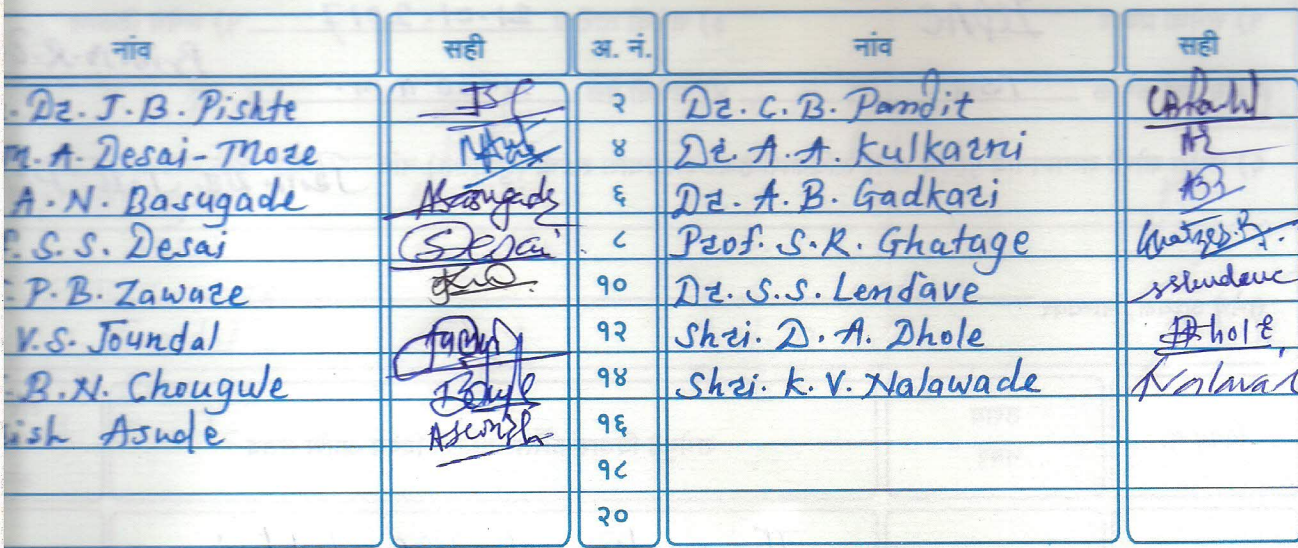 नांव सही अ. नं. नांव सही
. Dr. J. B. Pishte २ Dr. C. B. Pandit
M. A. Desai-More ४ Dr. A. A. Kulkarni
A. N. Basugade ६ Dr. A. B. Gadkari
S. S. Desai SDesai ८ Prof. S. R. Ghatage
P. B. Zaware १० Dr. S. S. Lendave
V. S. Joundal १२ Shri. D. A. Dhole Dhole
B. N. Chougule १४ Shri. K. V. Nalawade
ish Asude १६
१८
२०